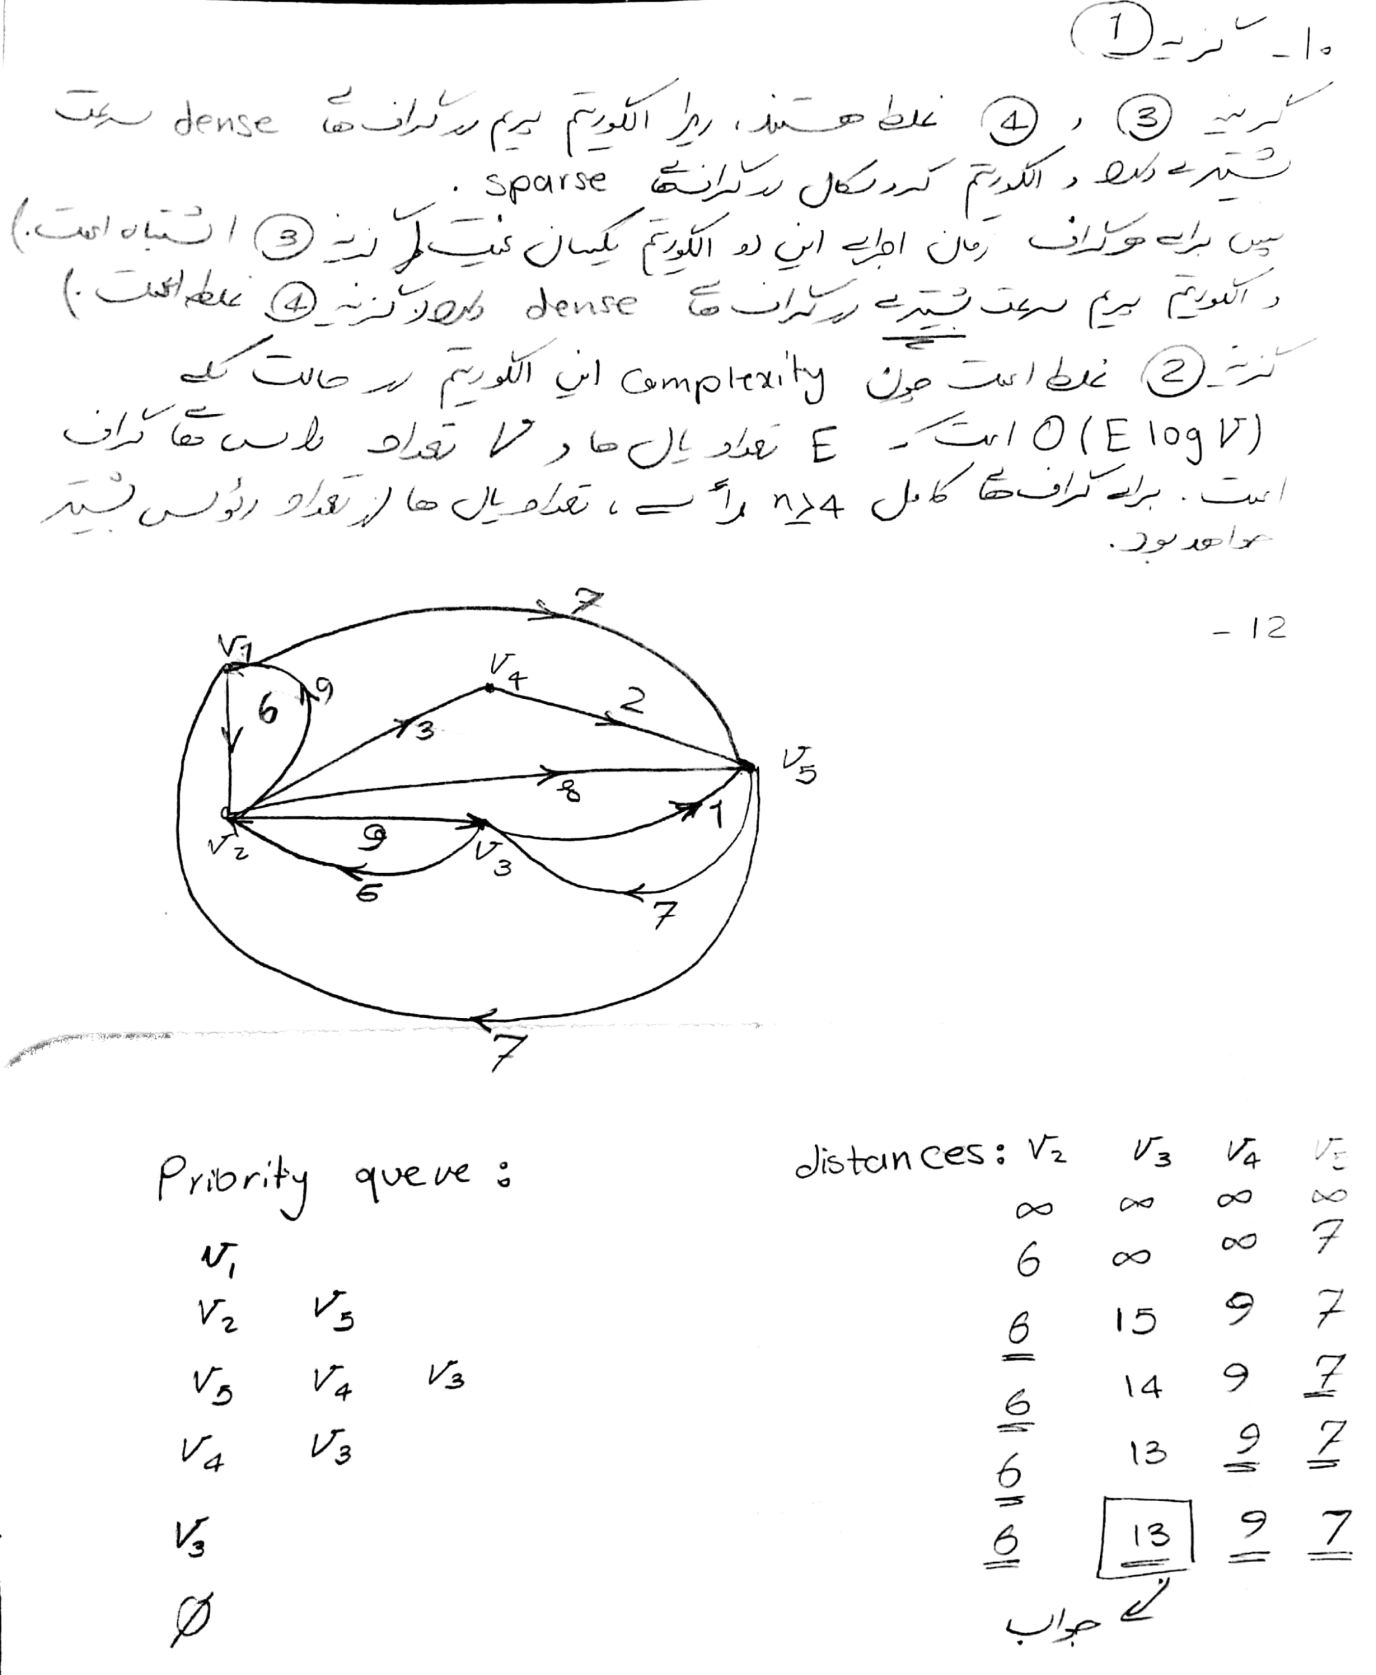 10 - گزینه 1
گزینه 3 و 4 غلط هستند، زیرا الگوریتم پریم در گراف های dense سرعت
بیشتری دارد و الگوریتم کروسکال در گراف های sparse .
پس برای هر گراف زمان اجرای این دو الگوریتم یکسان نیست (گزینه 3 اشتباه است.)
و الگوریتم پریم سرعت بیشتری در گراف های dense دارد (گزینه 4 غلط است.)
گزینه 2 غلط است چون complexity این الگوریتم در حالت کلی
O(E log V) است که E تعداد یال ها و V تعداد راس های گراف
است. برای گراف های کامل n≥4 راسی، تعداد یال ها از تعداد رئوس بیشتر
خواهد بود.
12 -
7
V1
V4
9
6
2
3
V5
8
1
9
V2
V3
6
7
7
Priority queue:
V1
V2 V5
V5 V4 V3
V4 V3
V3
∅
distances: V2 V3 V4 V5
∞ ∞ ∞ ∞
6 ∞ ∞ 7
6 15 9 7
6 14 9 7
6 13 9 7
6 13 9 7
جواب